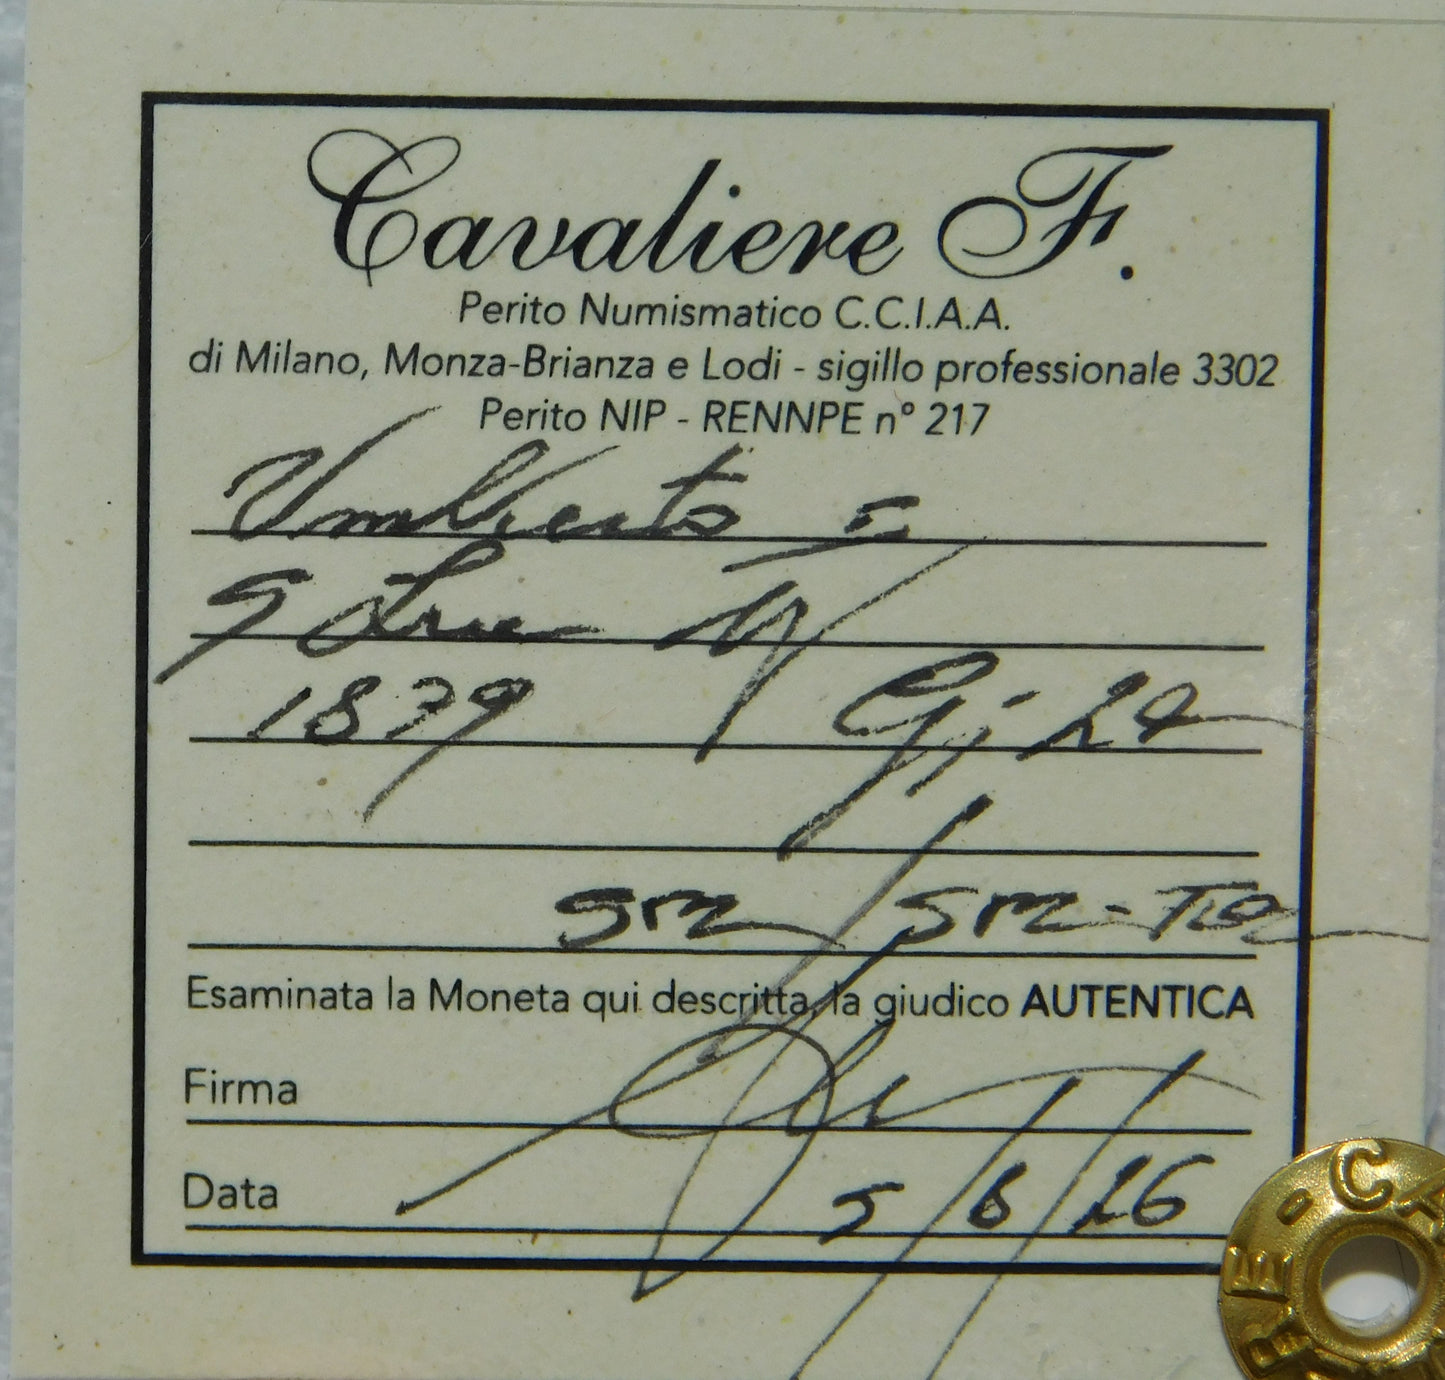 Cavaliere F.
Perito Numismatico C.C.I.A.A.
di Milano, Monza-Brianza e Lodi - sigillo professionale 3302
Perito NIP - RENNPE n° 217
Umberto I
Lire
1879 Gi. 24
Esaminata la Moneta qui descritta, la giudico AUTENTICA
Firma
Data 5/6/26